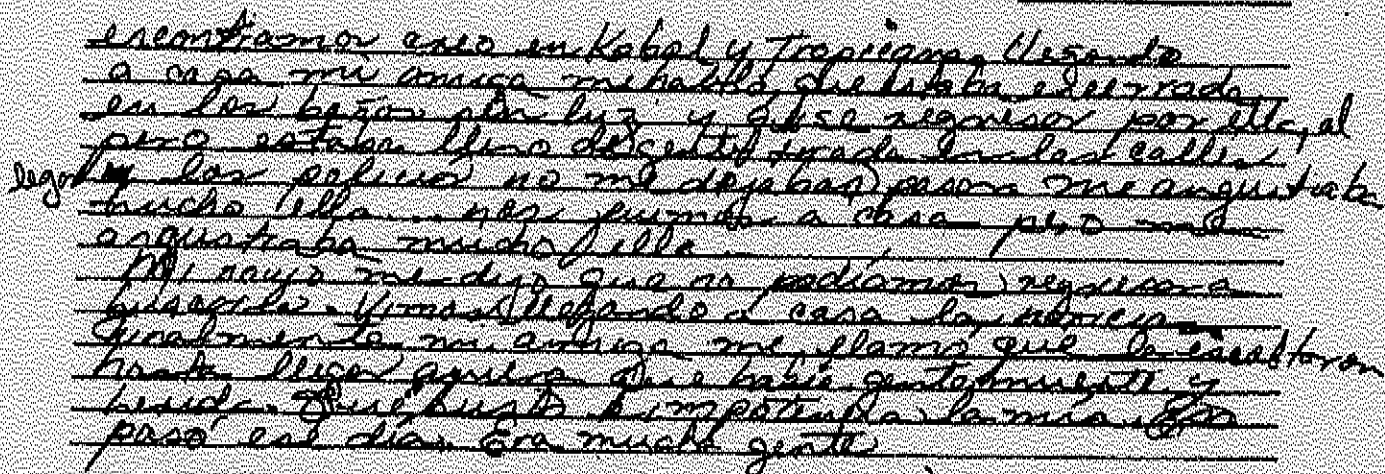 encontramos creo en Kobal y Tropicana. Llegando
a casa mi amiga me habló que estaba encerrada
en los baños sin luz y que regresar por ella, al
pero estaba lleno de gente tirada en las calles
llegar y los policias no me dejaban pasar me angustiaba
mucho ella... nos fuimos a casa pero me
angustiaba mucho ella...
Mi novio me dijo que no podíamos regresar a
buscarla. Vimos llegando a casa la noticia
finalmente mi amiga me llamó que la escoltaron
hasta llegar que había gente muerta y
herida. Que susto e impotencia la mía
pasó ese día. Era mucha gente